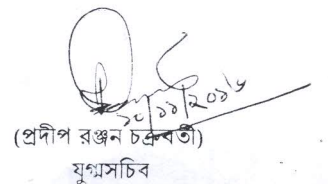 ১৫/১১/২০১৬
(প্রদীপ রঞ্জন চক্রবর্তী)
যুগ্মসচিব